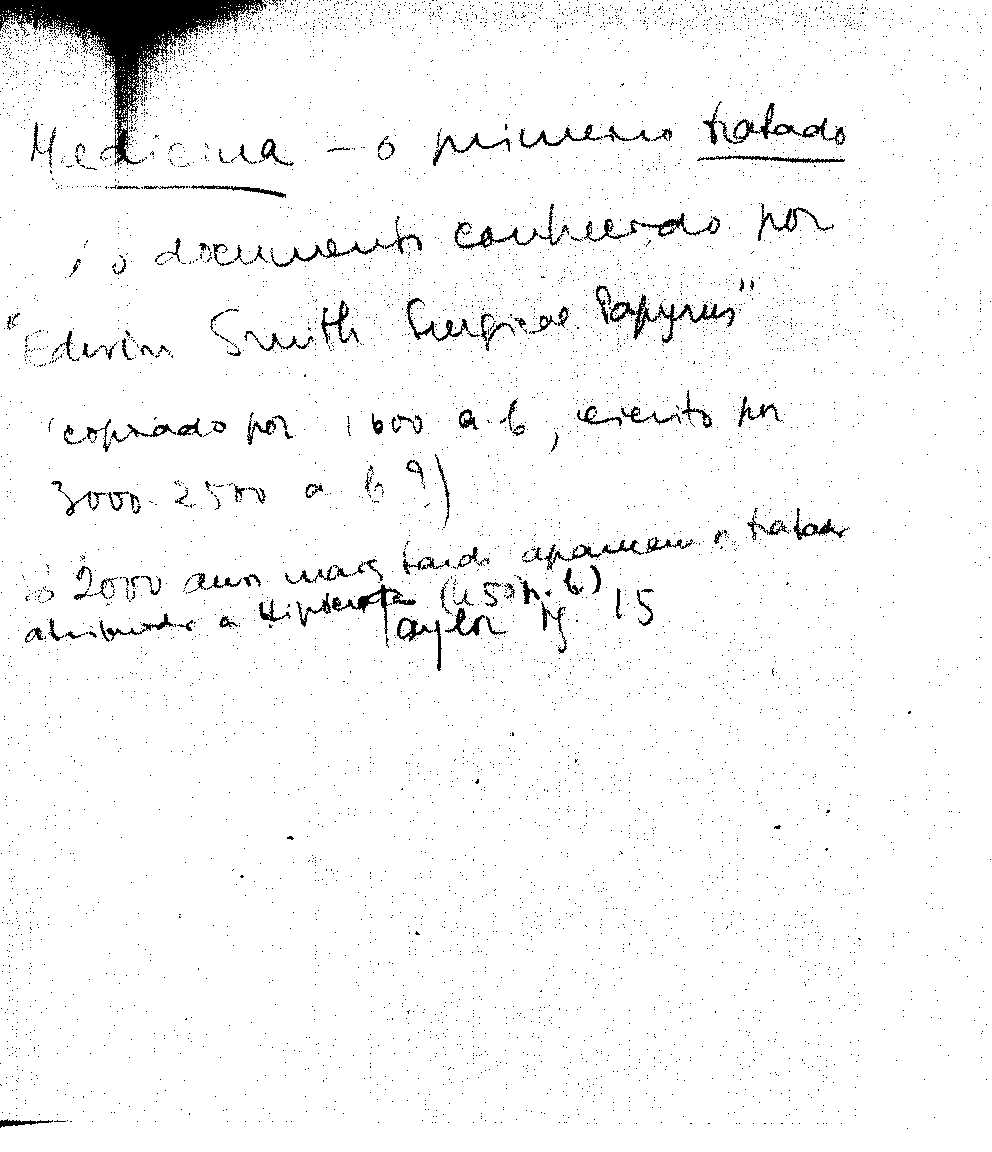 Medicina – o primeiro tratado
é o documento conhecido por
"Edwin Smith Surgical Papyrus"
(copiado por 1600 a.C, escrito por
3000-2500 a C ?)
Só 2000 anos mais tarde aparecem os tratados
atribuidos a Hipócrates (450 a. C)
Taylor pg. 15